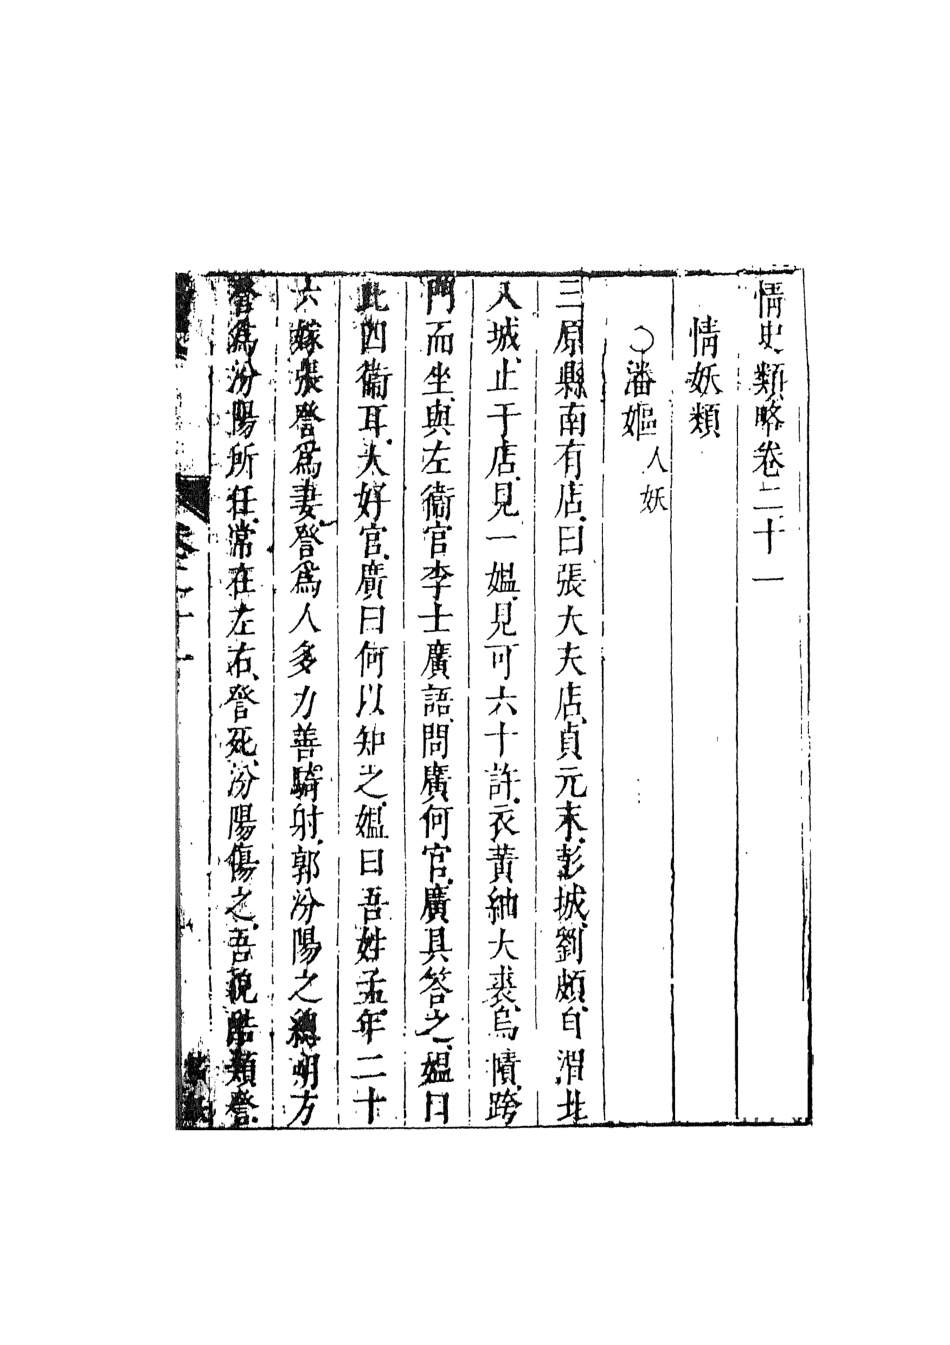 情史類略卷二十一
情妖類
○潘嫗 人妖
三原縣南有店、曰張大夫店、貞元末、彭城劉頗、自渭北
入城、止于店、見一媼、見可六十許、衣黃紬大裘、烏幘、跨
門而坐、與左衞官李士廣語、問廣何官、廣具答之、媼曰
此四衞耳、大好官、廣曰何以知之、媼曰吾姓孟、年二十
六嫁張詧爲妻、詧爲人多力善騎射、郭汾陽之總朔方
詧爲汾陽所任、常在左右、詧死、汾陽傷之、吾貌酷類詧、
卷二十一